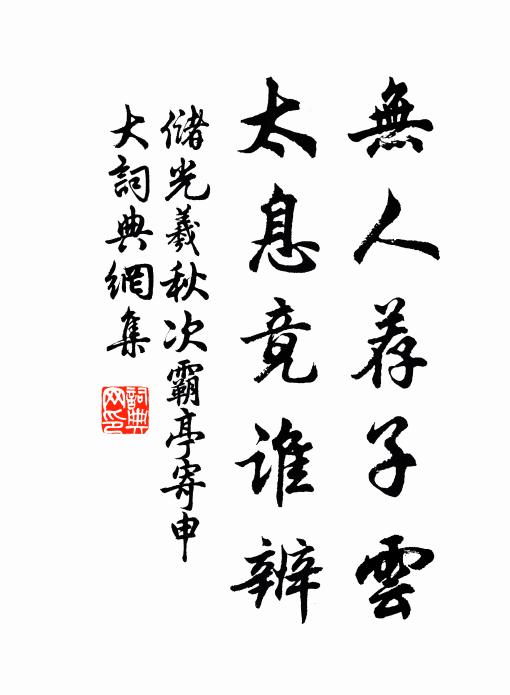 無人荐子雲
太息竟谁辨
储光羲秋次霸亭寄申
大詞典網集
詞典网印